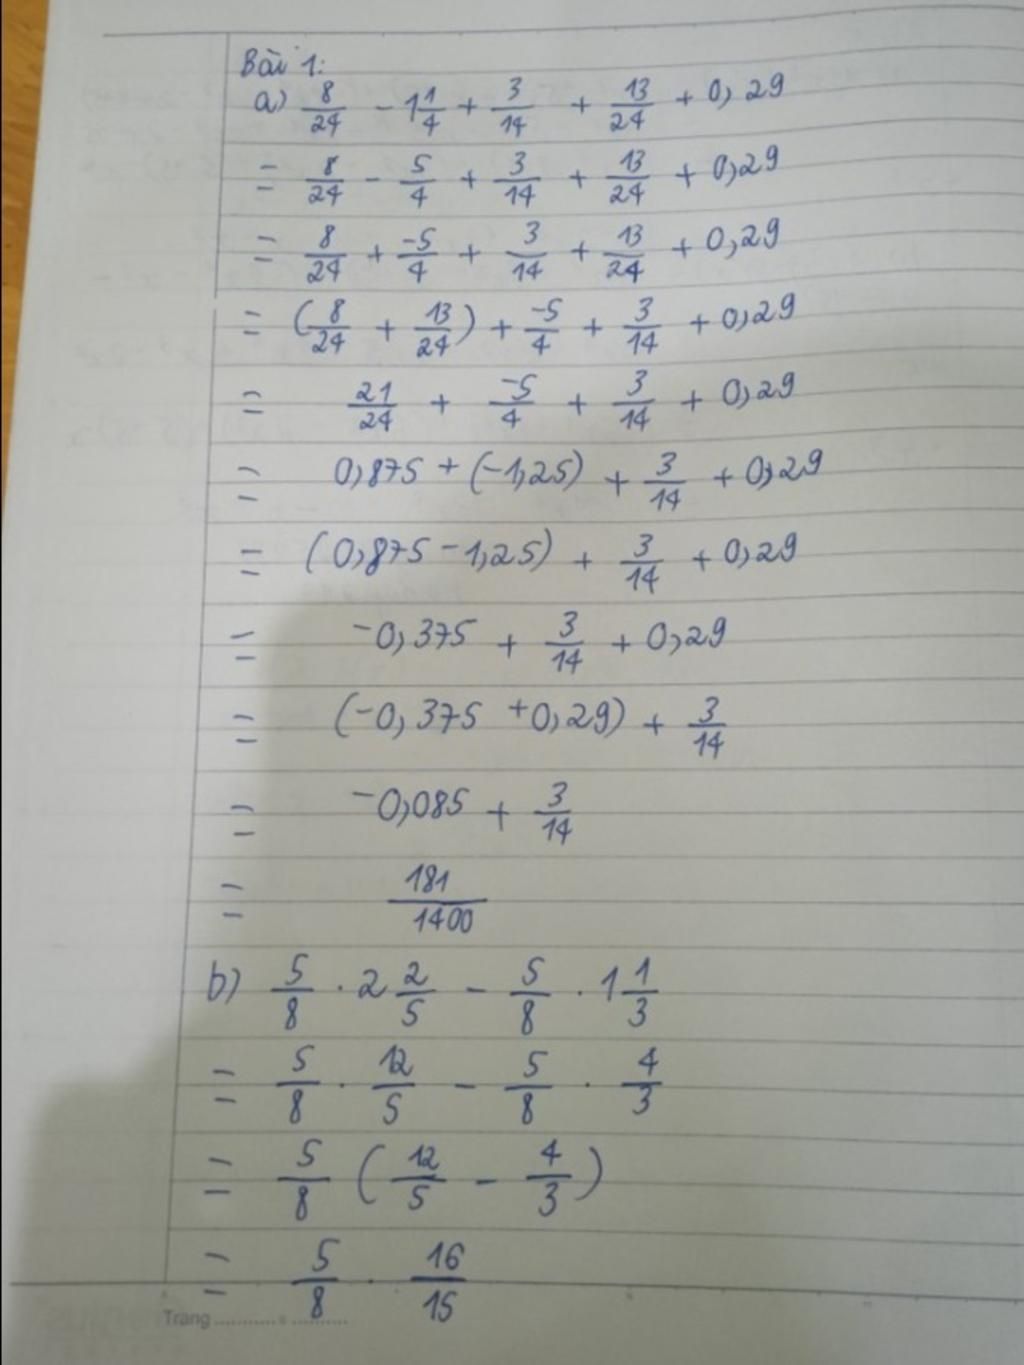 Bài 1:
a) 8/24 - 1 1/4 + 3/14 + 13/24 + 0,29
= 8/24 - 5/4 + 3/14 + 13/24 + 0,29
= 8/24 + -5/4 + 3/14 + 13/24 + 0,29
= (8/24 + 13/24) + -5/4 + 3/14 + 0,29
= 21/24 + -5/4 + 3/14 + 0,29
= 0,875 + (-1,25) + 3/14 + 0,29
= (0,875 - 1,25) + 3/14 + 0,29
= -0,375 + 3/14 + 0,29
= (-0,375 + 0,29) + 3/14
= -0,085 + 3/14
= 181/1400
b) 5/8 . 2 2/5 - 5/8 . 1 1/3
= 5/8 . 12/5 - 5/8 . 4/3
= 5/8 (12/5 - 4/3)
= 5/8 . 16/15
Trang